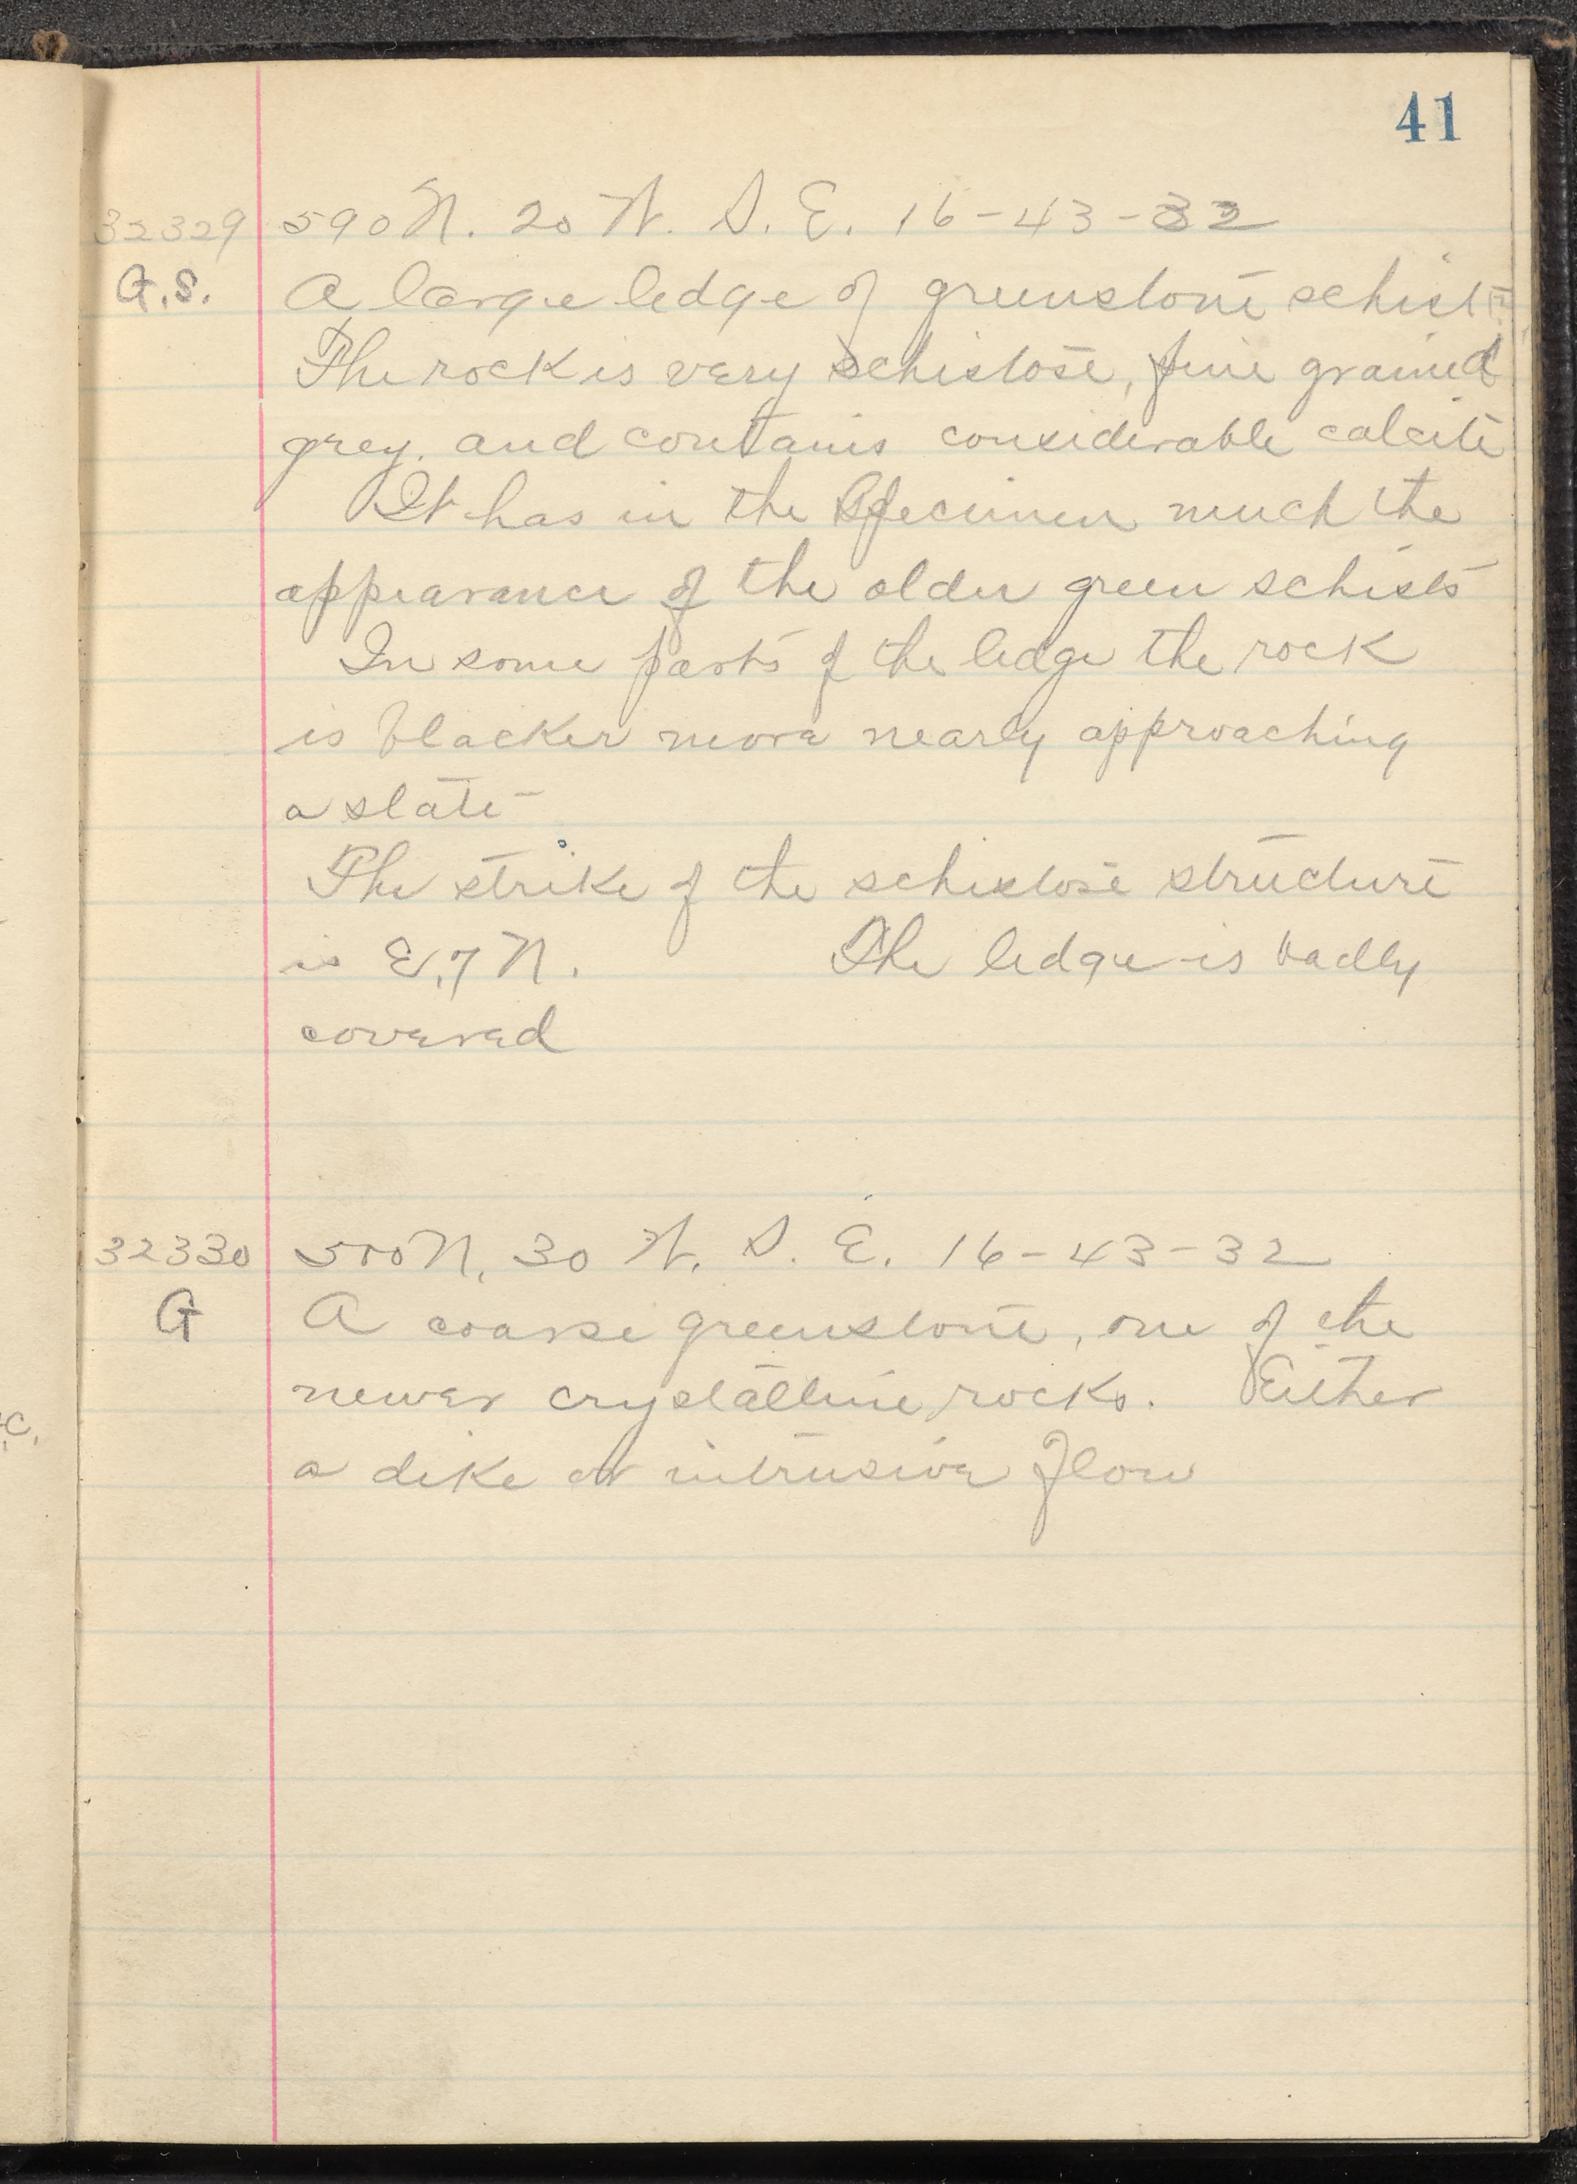 41
32329 590 N. 20 W. S. E. 16-43-32
G.S. A large ledge of greenstone schist
The rock is very schistose, fine grained
grey. and contains considerable calcite
It has in the specimen much the
appearance of the older green schists
In some parts of the ledge the rock
is blacker more nearly approaching
a slate
The strike of the schistose structure
is E. 7 N. The ledge is badly
covered
32330 500 N. 30 W. S. E. 16-43-32
G A coarse greenstone, one of the
newer crystalline rocks. Either
a dike or intrusive flow
C.